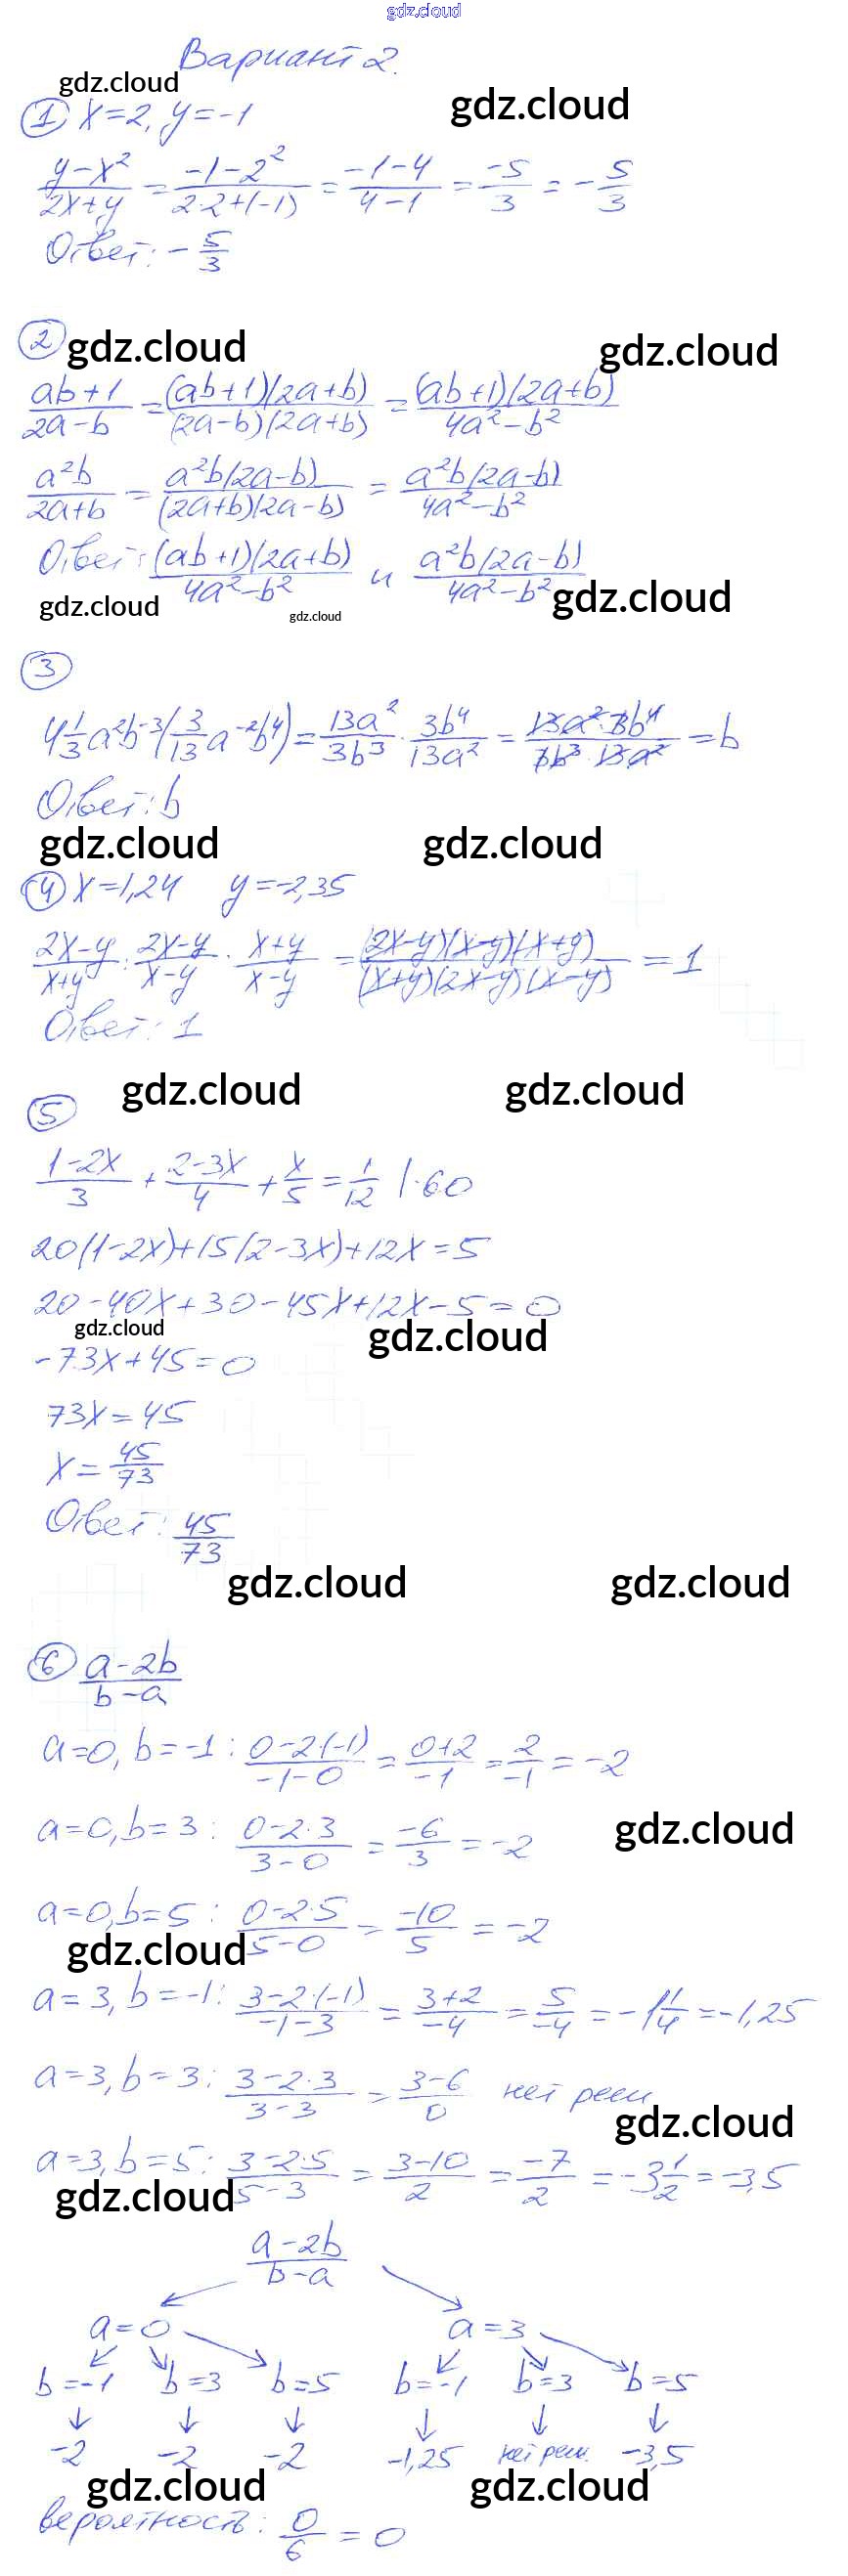 gdz.cloud
Вариант 2.
gdz.cloud gdz.cloud
① x=2, y=-1
(y-x²)/(2x+y) = (-1-2²)/(2·2+(-1)) = (-1-4)/(4-1) = -5/3 = -5/3
Ответ: -5/3
② gdz.cloud gdz.cloud
(ab+1)/(2a-b) = (ab+1)(2a+b)/(2a-b)(2a+b) = (ab+1)(2a+b)/(4a²-b²)
a²b/(2a+b) = a²b(2a-b)/(2a+b)(2a-b) = a²b(2a-b)/(4a²-b²)
Ответ: (ab+1)(2a+b)/(4a²-b²) и a²b(2a-b)/(4a²-b²)
gdz.cloud gdz.cloud gdz.cloud
③
4 1/3 a²b⁻³(3/13 a⁻²b⁴) = 13a²/3b³ · 3b⁴/13a² = 13a²·3b⁴/3b³·13a² = b
Ответ: b
gdz.cloud gdz.cloud
④ x=1,24 y=-2,35
(2x-y)/(x+y) : (2x-y)/(x-y) · (x+y)/(x-y) = (2x-y)(x-y)(x+y)/(x+y)(2x-y)(x-y) = 1
Ответ: 1
gdz.cloud gdz.cloud
⑤
(1-2x)/3 + (2-3x)/4 + x/5 = 1/12 |·60
20(1-2x)+15(2-3x)+12x=5
20-40x+30-45x+12x-5=0
gdz.cloud gdz.cloud
-73x+45=0
73x=45
x=45/73
Ответ: 45/73
gdz.cloud gdz.cloud
⑥ (a-2b)/(b-a)
a=0, b=-1: (0-2·(-1))/(-1-0) = (0+2)/-1 = 2/-1 = -2
a=0, b=3: (0-2·3)/(3-0) = -6/3 = -2
gdz.cloud
a=0, b=5: (0-2·5)/(5-0) = -10/5 = -2
gdz.cloud
a=3, b=-1: (3-2·(-1))/(-1-3) = (3+2)/-4 = 5/-4 = -1 1/4 = -1,25
a=3, b=3: (3-2·3)/(3-3) = (3-6)/0 нет реш
gdz.cloud
a=3, b=5: (3-2·5)/(5-3) = (3-10)/2 = -7/2 = -3 1/2 = -3,5
gdz.cloud
(a-2b)/(b-a)
a=0 a=3
b=-1 b=3 b=5 b=-1 b=3 b=5
-2 -2 -2 -1,25 нет реш. -3,5
gdz.cloud gdz.cloud
вероятность: 0/6 = 0